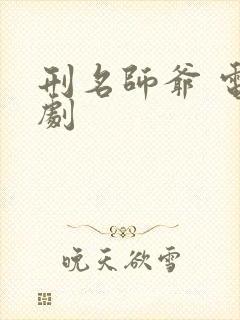 刑名師爺 電
劇
晚天欲雪